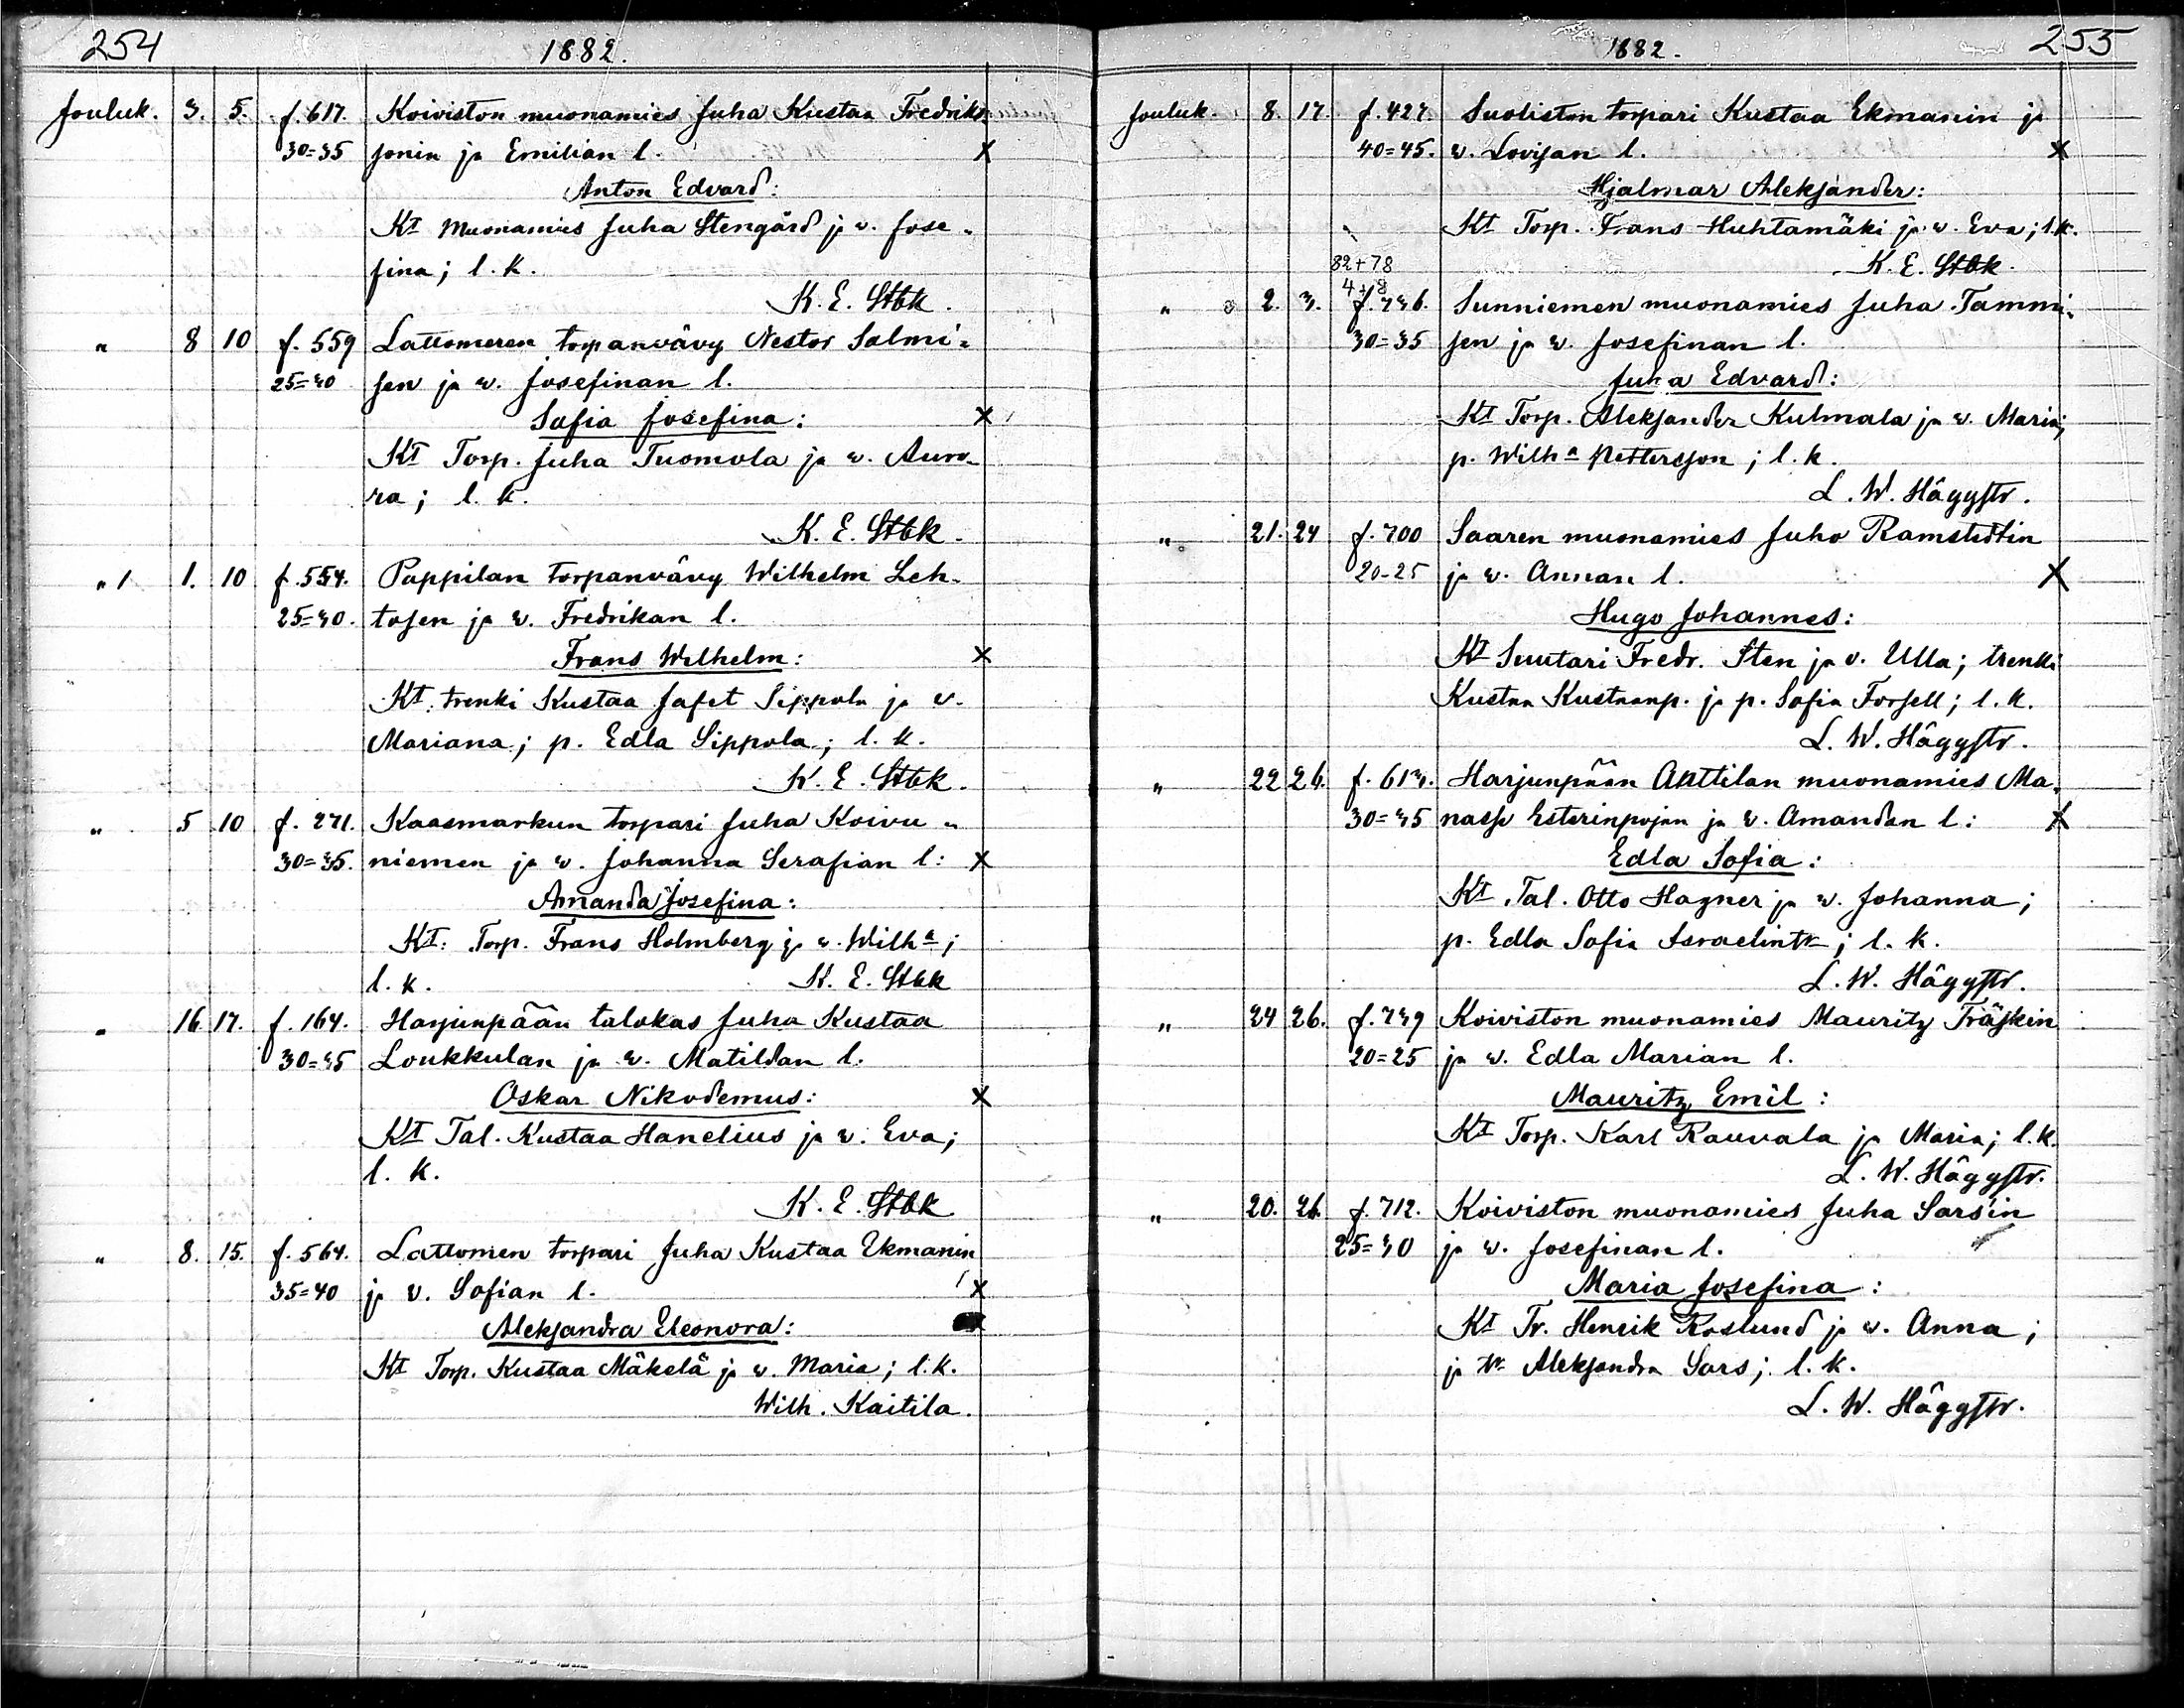 254
1882.
Jouluk. 3. 5. f. 617. Koiviston muonamies Juha Kustaa Fredriks-
30=35 sonin ja Emilian l. X
Anton Edvard:
Kt Muonamies Juha Stengård ja v. Jose-
fina; l. k.
K. E. Stbk.
" 8 10 f. 559 Lattomeren torpanvävy Nestor Salmi-
25=30 sen ja v. Josefinan l.
Sofia Josefina: X
Kt Torp. Juha Tuomola ja v. Auro-
ra; l. k.
K. E. Stbk.
" 1 1. 10 f. 554. Pappilan torpanvävy Wilhelm Leh-
25=30. tosen ja v. Fredrikan l.
Frans Wilhelm: X
Kt. trenki Kustaa Jafet Sippola ja v.
Mariana; p. Edla Sippola; l. k.
K. E. Stbk.
" 5 10 f. 271. Kaasmarkun torpari Juha Koivu-
30=35. niemen ja v. Johanna Serafian l: X
Amanda Josefina:
Kt: Torp. Frans Holmberg ja v. Wilha;
l. k. K. E. Stbk
" 16 17. f. 164. Harjunpään talokas Juha Kustaa
30=35 Loukkulan ja v. Matildan l.
Oskar Nikodemus: X
Kt Tal. Kustaa Hanelius ja v. Eva;
l. k.
K. E. Stbk
" 8. 15. f. 564. Lattomen torpari Juha Kustaa Ekmanin
35=40 ja v. Sofian l. X
Aleksandra Eleonora:
Kt Torp. Kustaa Mäkelä ja v. Maria; l. k.
Wilh. Kaitila.
255
1882.
Jouluk. 8. 17. f. 427. Suoliston torpari Kustaa Ekmanin ja
40=45. v. Lovisan l. X
Hjalmar Aleksander:
Kt Torp. Frans Huhtamäki ja v. Eva; l.k.
82+78 K. E. Stbk.
4+8
" 2. 3. f. 736. Sunniemen muonamies Juha Tammi-
30=35 sen ja v. Josefinan l.
Juha Edvard:
Kt Torp. Aleksander Kulmala ja v. Maria;
p. Wilha Pettersson; l. k.
L. W. Häggstr.
" 21. 24 f. 700 Saaren muonamies Juho Ramstedtin
20-25 ja v. Annan l. X
Hugo Johannes:
Kt Suutari Fredr. Sten ja v. Ulla; trenki
Kustaa Kustaanp. ja p. Sofia Forsell; l. k.
L. W. Häggstr.
" 22 26. f. 613. Harjunpään Anttilan muonamies Ma-
30=35 nasse Esterinpojan ja v. Amandan l: X
Edla Sofia:
Kt. Tal. Otto Hagner ja v. Johanna;
p. Edla Sofia Israelintr; l. k.
L. W. Häggstr.
" 24 26. f. 739 Koiviston muonamies Mauritz Träskin
20=25 ja v. Edla Marian l.
Mauritz Emil:
Kt Torp. Karl Rauvala ja Maria; l. k.
L. W. Häggstr.
" 20. 26 f. 712. Koiviston muonamies Juha Sarsin
25=30 ja v. Josefinan l.
Maria Josefina:
Kt Tr. Henrik Roslund ja v. Anna;
ja tr Aleksandra Sars; l. k.
L. W. Häggstr.